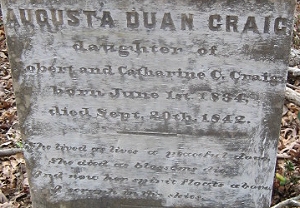 AUGUSTA DUAN CRAIG
daughter of
Robert and Catharine C. Craig
born June 1st 1834,
died Sept. 20th. 1842.
She lived as lives a peaceful dove
She died as blossoms die
And now her spirit floats above
skies.